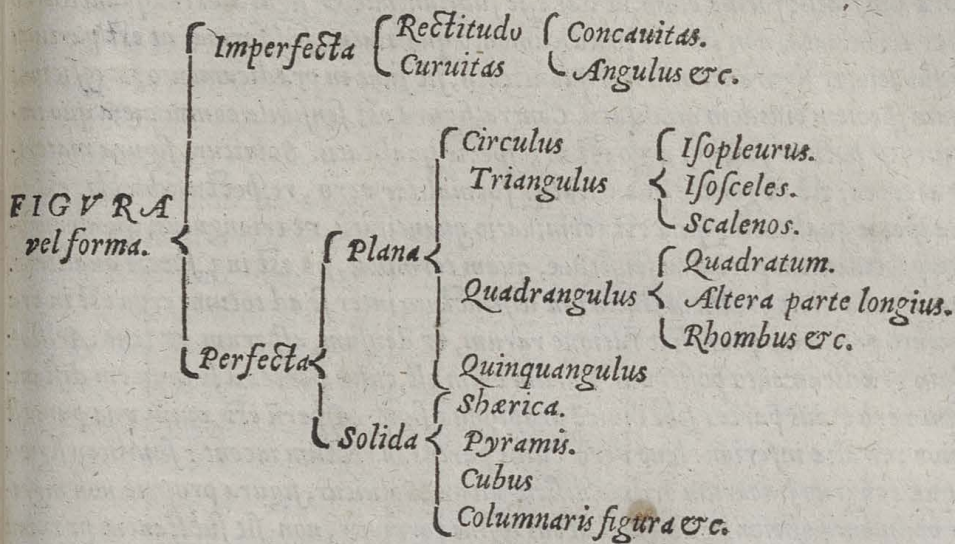 Imperfecta
Rectitudo
Curuitas
Concauitas.
Angulus &c.
FIGVRA
vel forma.
Perfecta
Plana
Circulus
Triangulus
Iſopleurus.
Iſoſceles.
Scalenos.
Quadrangulus
Quadratum.
Altera parte longius.
Rhombus &c.
Quinquangulus
Solida
Shærica.
Pyramis.
Cubus
Columnaris figura &c.